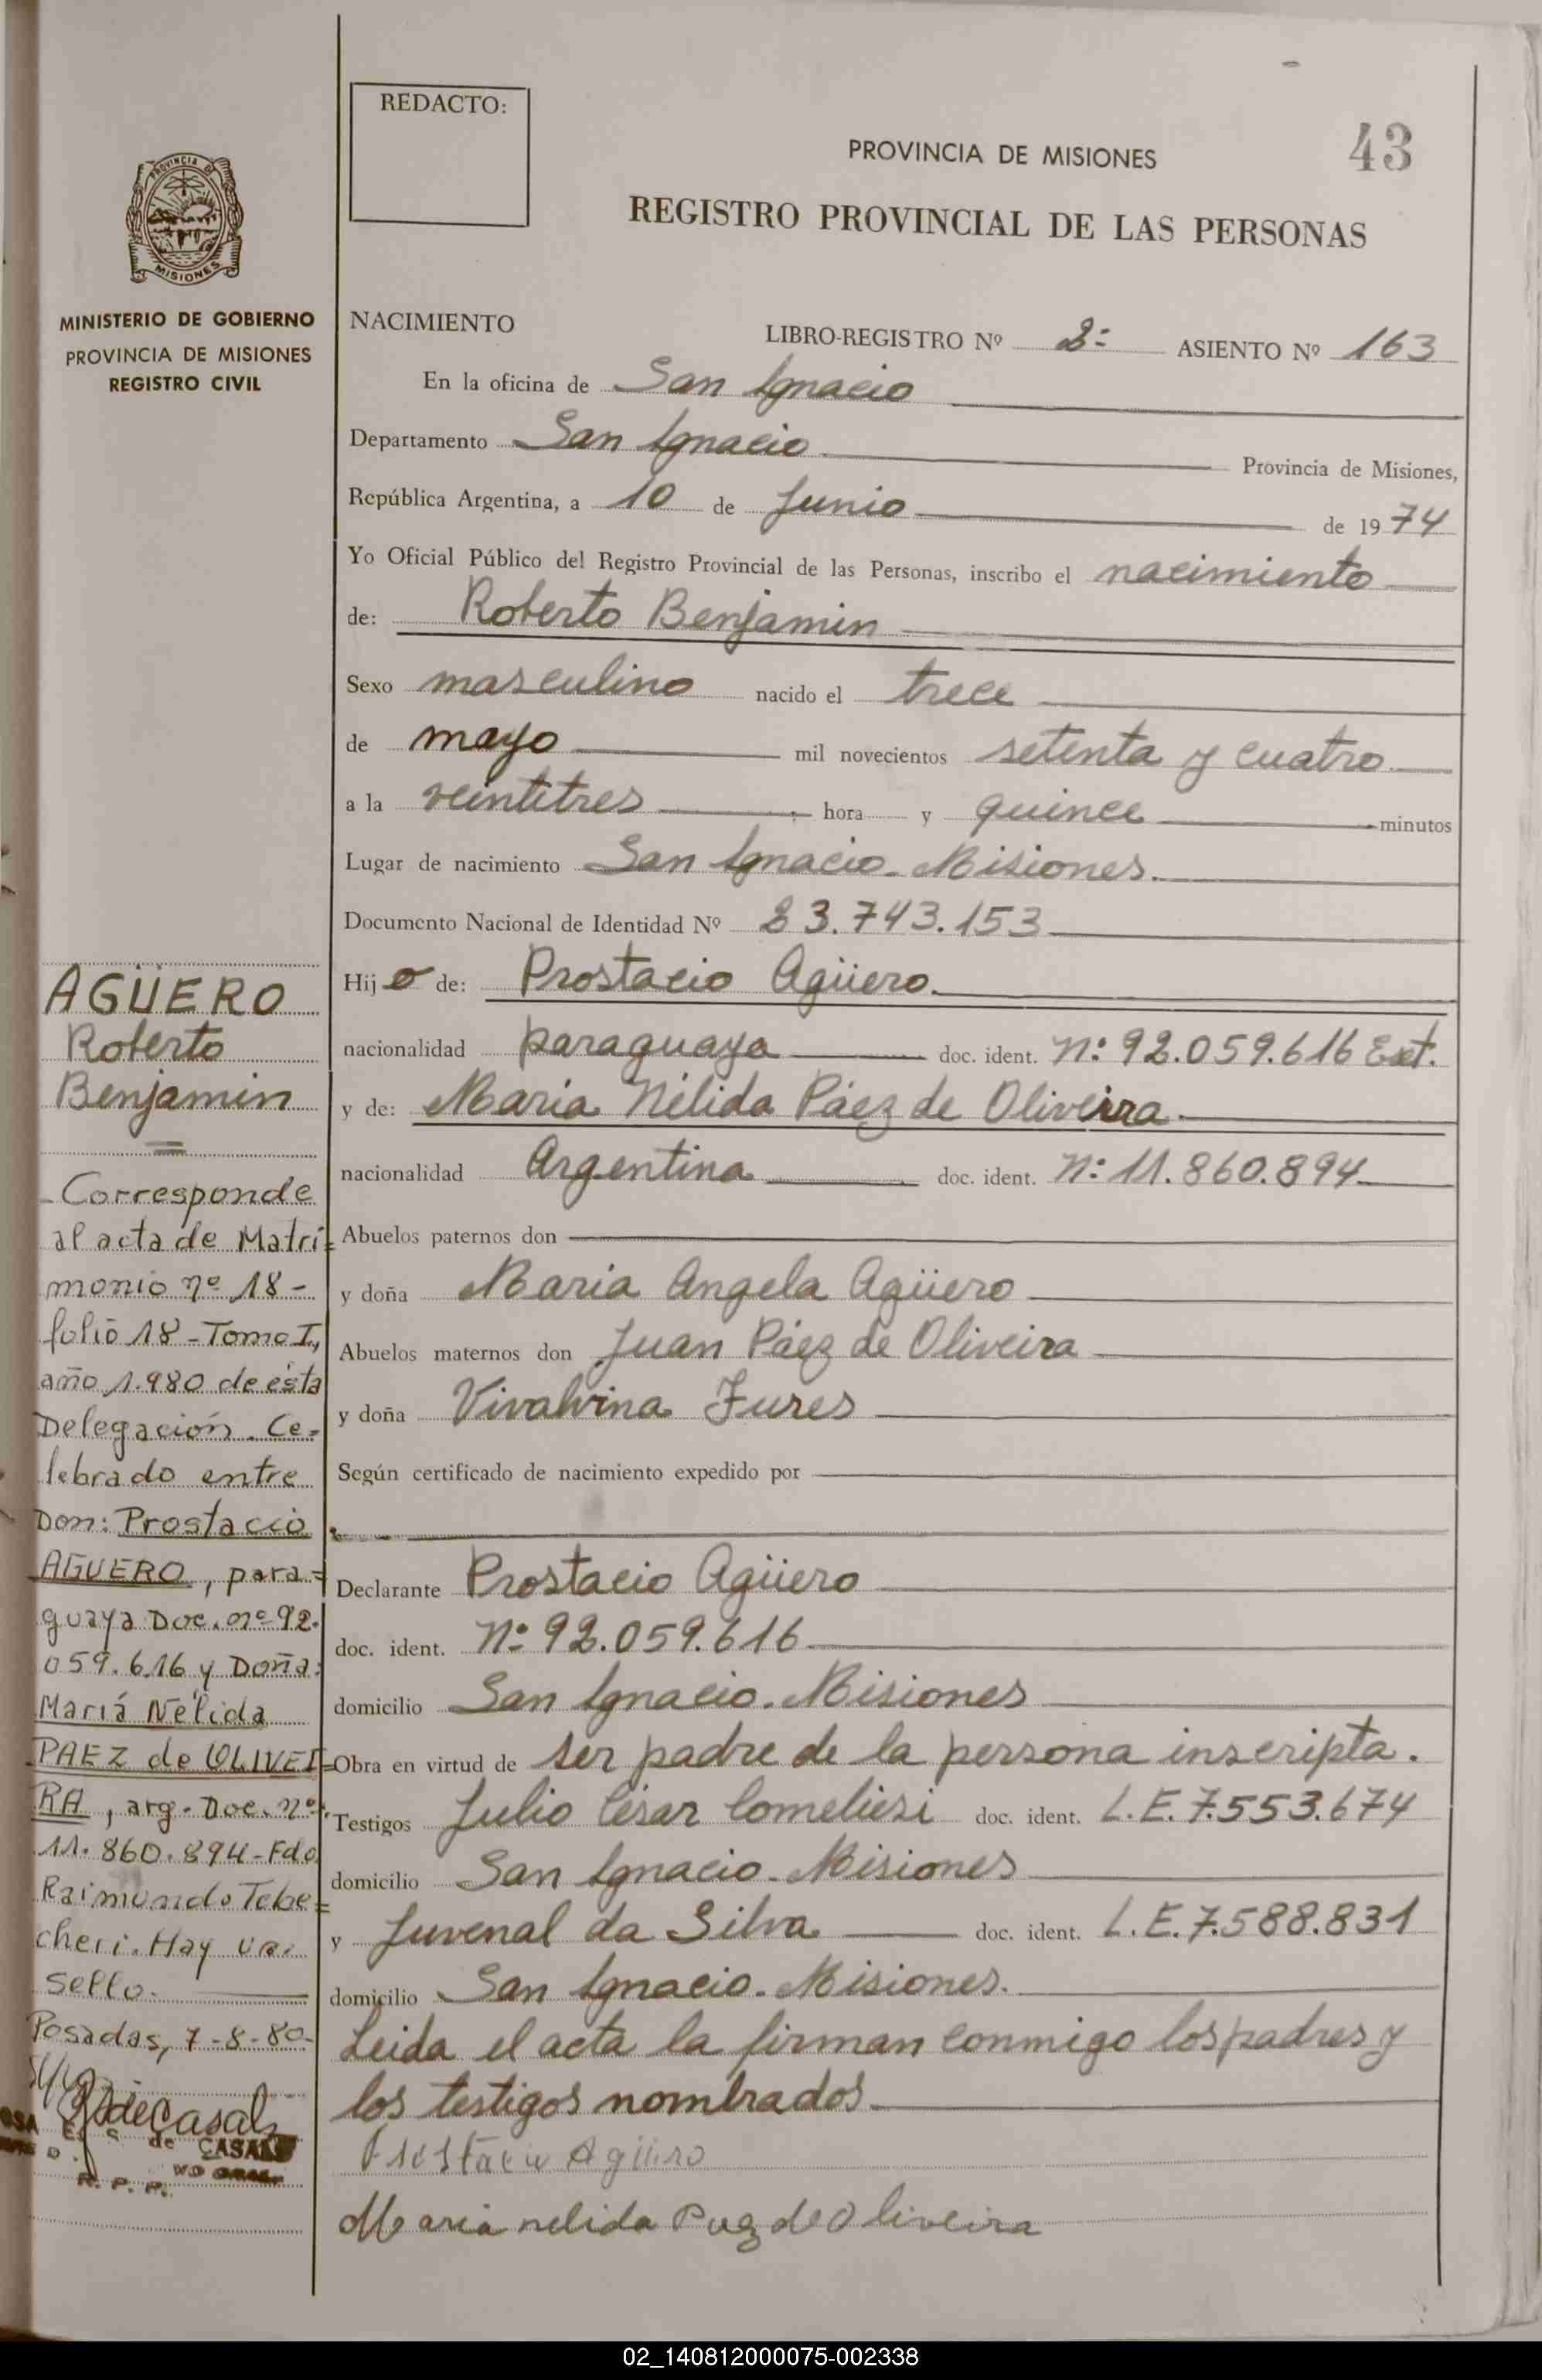 REDACTO:
PROVINCIA DE MISIONES
43
REGISTRO PROVINCIAL DE LAS PERSONAS
PROVINCIA DE
MISIONES
MINISTERIO DE GOBIERNO
PROVINCIA DE MISIONES
REGISTRO CIVIL
NACIMIENTO LIBRO-REGISTRO Nº 2- ASIENTO Nº 163
En la oficina de San Ignacio
Departamento San Ignacio Provincia de Misiones,
República Argentina, a 10 de Junio de 1974
Yo Oficial Público del Registro Provincial de las Personas, inscribo el nacimiento
de: Roberto Benjamin
Sexo masculino nacido el trece
de mayo mil novecientos setenta y cuatro
a la veintitres hora y quince minutos
Lugar de nacimiento San Ignacio - Misiones.
Documento Nacional de Identidad Nº 23.743.153
Hijo de: Prostacio Agüero.
nacionalidad paraguaya doc. ident. nº 92.059.616 Ext.
y de: Maria Nélida Páez de Oliveira
nacionalidad Argentina doc. ident. nº 11.860.894
Abuelos paternos don
y doña Maria Angela Agüero
Abuelos maternos don Juan Páez de Oliveira
y doña Vivalvina Fures
Según certificado de nacimiento expedido por
Declarante Prostacio Agüero
doc. ident. Nº 92.059.616
domicilio San Ignacio. Misiones
Obra en virtud de ser padre de la persona inscripta.
Testigos Julio César doc. ident. L.E. 7.553.674
domicilio San Ignacio - Misiones
y Juvenal da Silva doc. ident. L.E. 7.588.831
domicilio San Ignacio. Misiones.
Leida el acta la firman conmigo los padres y
los testigos nombrados.
Agüero
Maria nelida Paez de Oliveira
AGÜERO
Roberto
Benjamin
- Corresponde
al acta de Matri=
monio nº 18 -
folio 18 - Tomo I,
año 1.980 de ésta
Delegación. Ce=
lebrado entre
Don: Prostacio
AGUERO, para=
guaya Doc. nº 92.
059.616 y Doña:
Mariá Nélida
PAEZ de OLIVEI=
RA, arg. Doc. nº
11.860.894 - Fdo
Raimundo Tebe=
cheri. Hay un
sello.
Posadas, 7-8-80-
de CASALS
R. P. P.
02_140812000075-002338